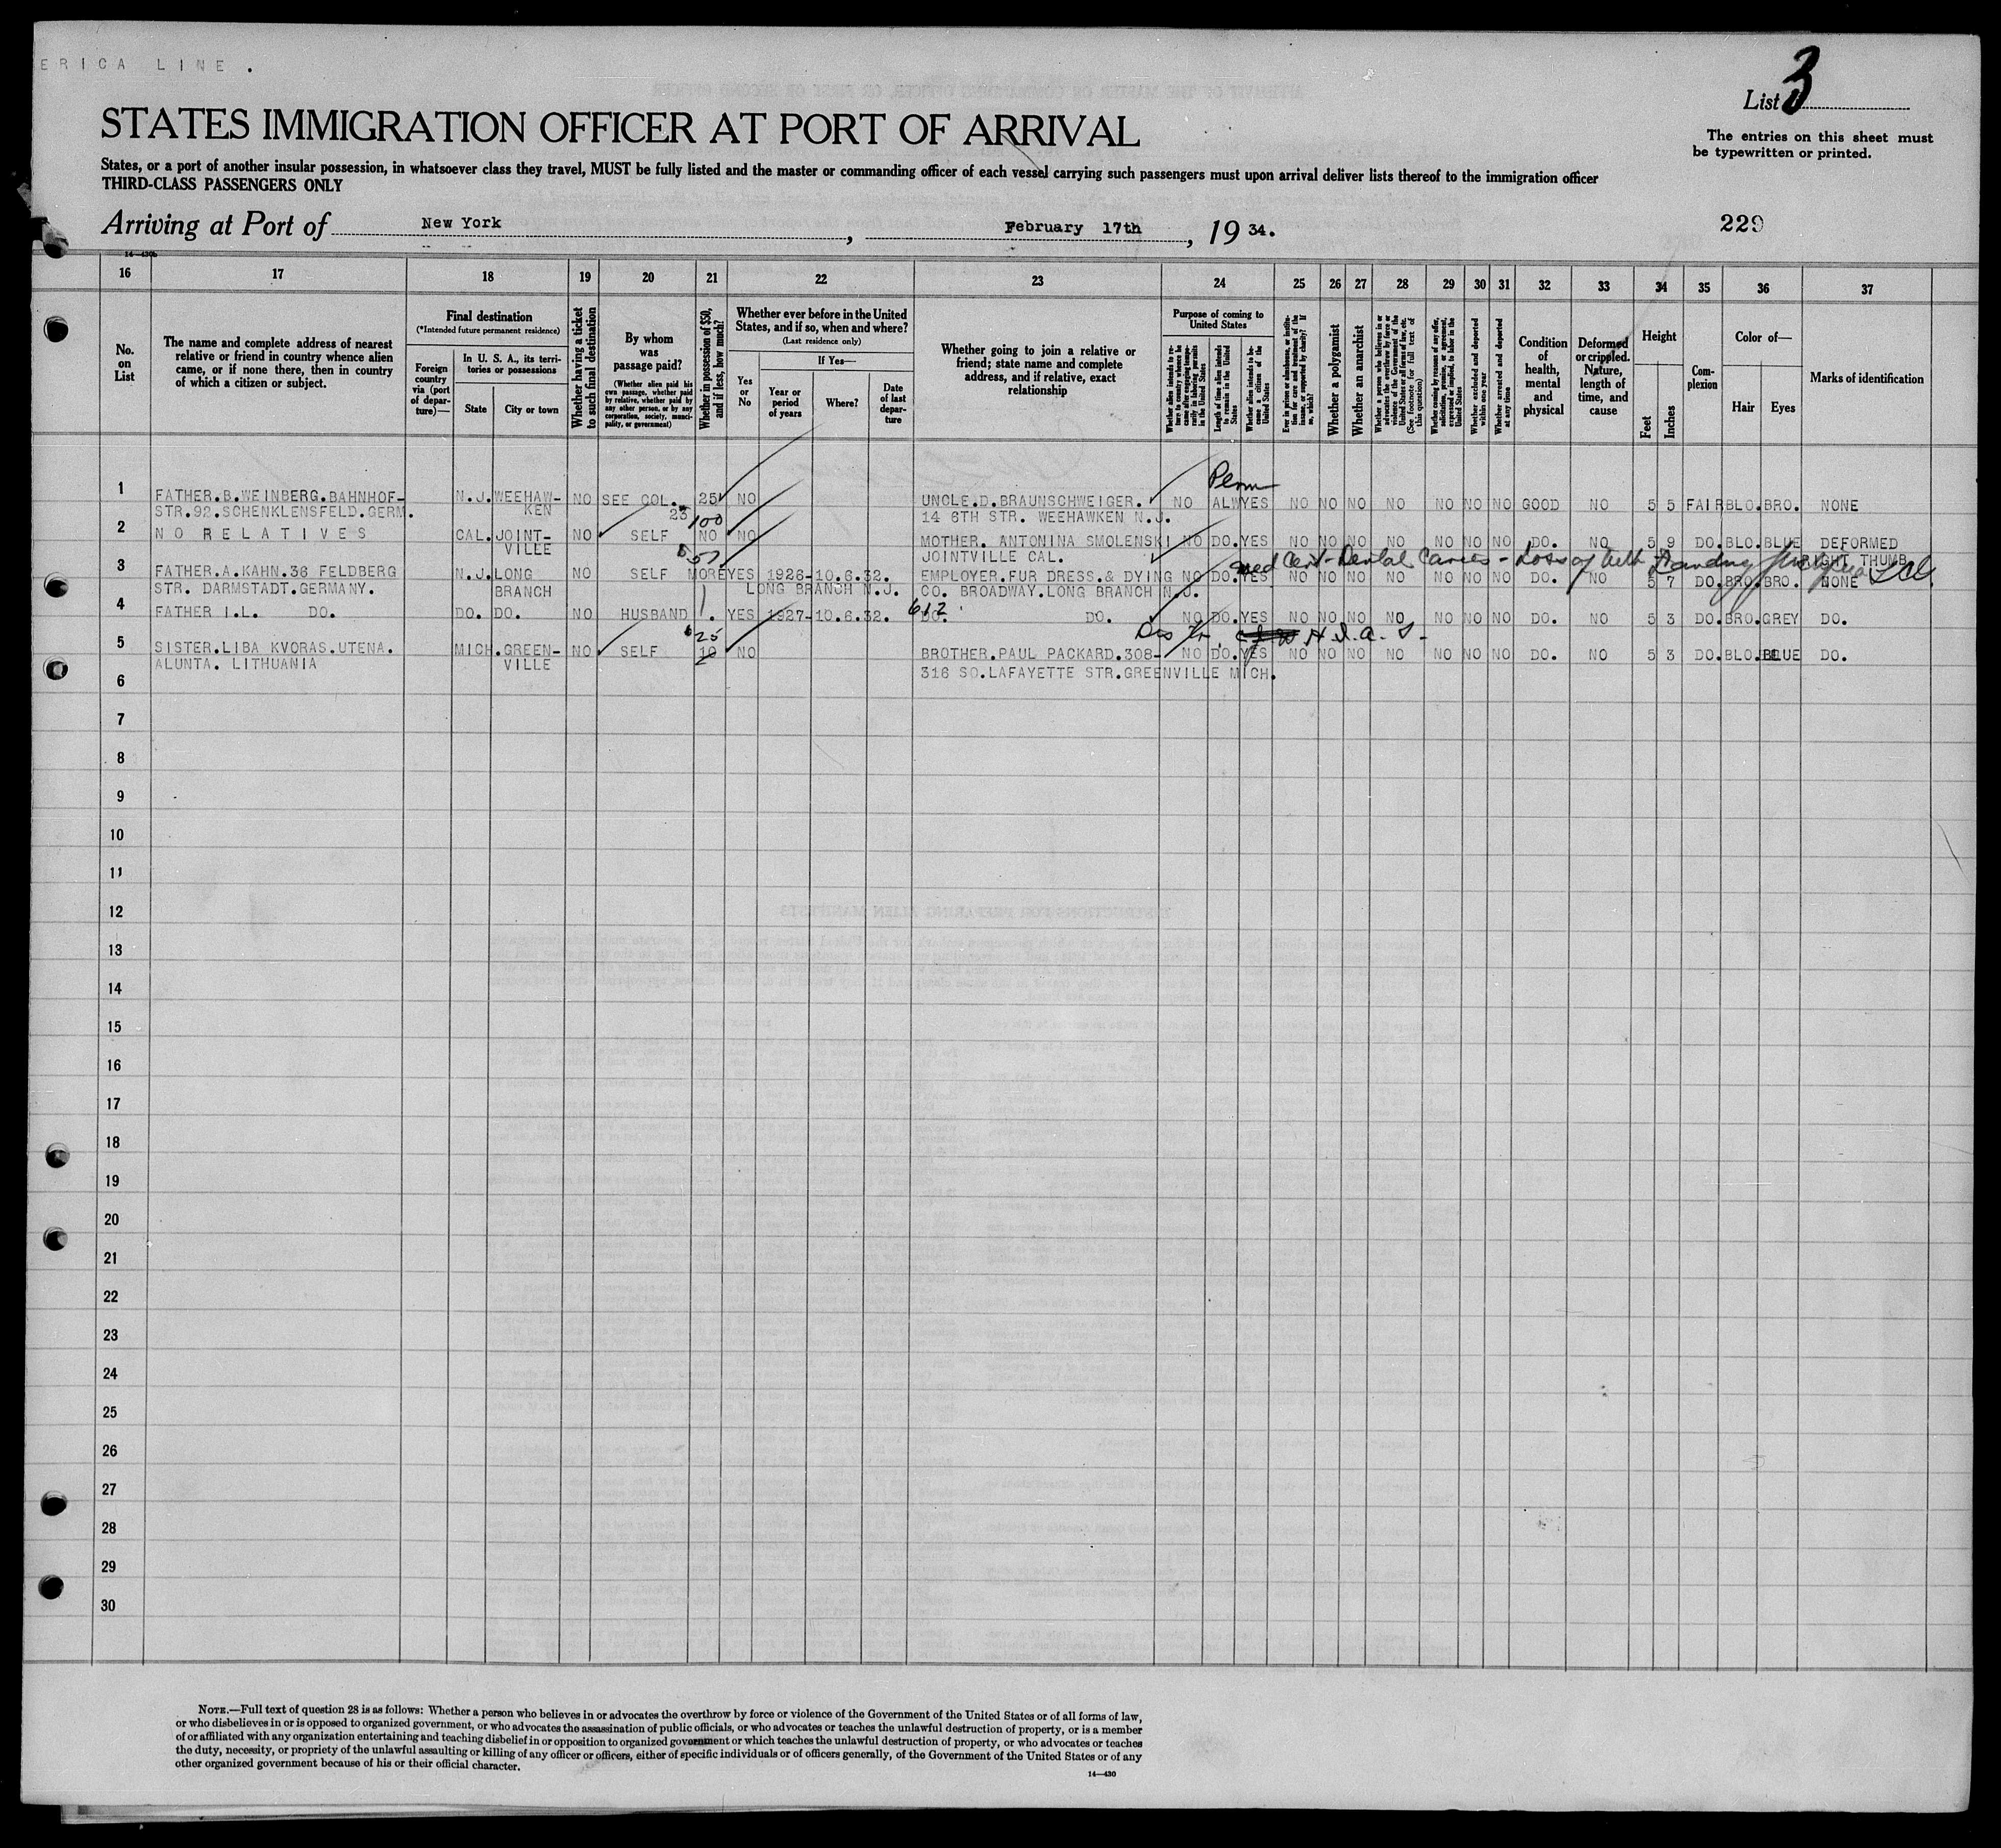 ERICA LINE.
List 3
STATES IMMIGRATION OFFICER AT PORT OF ARRIVAL
The entries on this sheet must
be typewritten or printed.
States, or a port of another insular possession, in whatsoever class they travel, MUST be fully listed and the master or commanding officer of each vessel carrying such passengers must upon arrival deliver lists thereof to the immigration officer
THIRD-CLASS PASSENGERS ONLY
Arriving at Port of New York, February 17th, 19 34.
229
14—430b
16 17 18 19 20 21 22 23 24 25 26 27 28 29 30 31 32 33 34 35 36 37
No. on List
The name and complete address of nearest relative or friend in country whence alien came, or if none there, then in country of which a citizen or subject.
Final destination
(*Intended future permanent residence)
Foreign country via (port of departure)—
In U. S. A., its territories or possessions
State
City or town
Whether having a ticket to such final destination
By whom was passage paid?
(Whether alien paid his own passage, whether paid by relative, whether paid by any other person, or by any corporation, society, municipality, or government)
Whether in possession of $50, and if less, how much?
Whether ever before in the United States, and if so, when and where?
(Last residence only)
If Yes—
Yes or No
Year or period of years
Where?
Date of last departure
Whether going to join a relative or friend; state name and complete address, and if relative, exact relationship
Purpose of coming to United States
Whether alien intends to return to country whence he came after engaging temporarily in laboring pursuits in the United States
Length of time alien intends to remain in the United States
Whether alien intends to become a citizen of the United States
Ever in prison or almshouse, or institution for care and treatment of the insane, or supported by charity? If so, which?
Whether a polygamist
Whether an anarchist
Whether a person who believes in or advocates the overthrow by force or violence of the Government of the United States or all forms of law, etc. (See footnote for full text of this question)
Whether coming by reason of any offer, solicitation, promise, or agreement, expressed or implied, to labor in the United States
Whether excluded and deported within one year
Whether arrested and deported at any time
Condition of health, mental and physical
Deformed or crippled. Nature, length of time, and cause
Height
Feet
Inches
Complexion
Color of—
Hair
Eyes
Marks of identification
Perm
1 FATHER.B.WEINBERG.BAHNHOF- N.J. WEEHAW- NO SEE COL. 25 NO UNCLE.D.BRAUNSCHWEIGER. NO ALW YES NO NO NO NO NO NO NO GOOD NO 5 5 FAIR BLO. BRO. NONE
STR.92.SCHENKLENSFELD.GERM. KEN 23 14 6TH STR. WEEHAWKEN N.J.
100
2 NO RELATIVES CAL. JOINT- NO SELF NO NO MOTHER. ANTONINA SMOLENSKI NO DO. YES NO NO NO NO NO NO NO DO. NO 5 9 DO. BLO. BLUE DEFORMED
VILLE JOINTVILLE CAL. RIGHT THUMB
Med Cert - Dental Caries - Loss of teeth
3 FATHER.A.KAHN.36 FELDBERG N.J. LONG NO SELF MORE YES 1926-10.6.32. EMPLOYER.FUR DRESS.& DYING NO DO. YES DO. NO 5 7 DO. BRO. BRO. NONE
STR. DARMSTADT.GERMANY. BRANCH LONG BRANCH N.J. CO. BROADWAY.LONG BRANCH N.J.
4 FATHER I.L. DO. DO. DO. NO HUSBAND . YES 1927-10.6.32. 612 DO. DO. NO DO. YES NO NO NO NO NO NO NO DO. NO 5 3 DO. BRO. GREY DO.
25 H.I.A.S.
5 SISTER.LIBA KVORAS.UTENA. MICH. GREEN- NO SELF 10 NO BROTHER.PAUL PACKARD.308- NO DO. YES NO NO NO NO NO NO NO DO. NO 5 3 DO. BLO. BLUE DO.
ALUNTA. LITHUANIA VILLE 316 SO.LAFAYETTE STR.GREENVILLE MICH.
6
7
8
9
10
11
12
13
14
15
16
17
18
19
20
21
22
23
24
25
26
27
28
29
30
NOTE.—Full text of question 28 is as follows: Whether a person who believes in or advocates the overthrow by force or violence of the Government of the United States or of all forms of law,
or who disbelieves in or is opposed to organized government, or who advocates the assassination of public officials, or who advocates or teaches the unlawful destruction of property, or is a member
of or affiliated with any organization entertaining and teaching disbelief in or opposition to organized government or which teaches the unlawful destruction of property, or who advocates or teaches
the duty, necessity, or propriety of the unlawful assaulting or killing of any officer or officers, either of specific individuals or of officers generally, of the Government of the United States or of any
other organized government because of his or their official character.
14—430